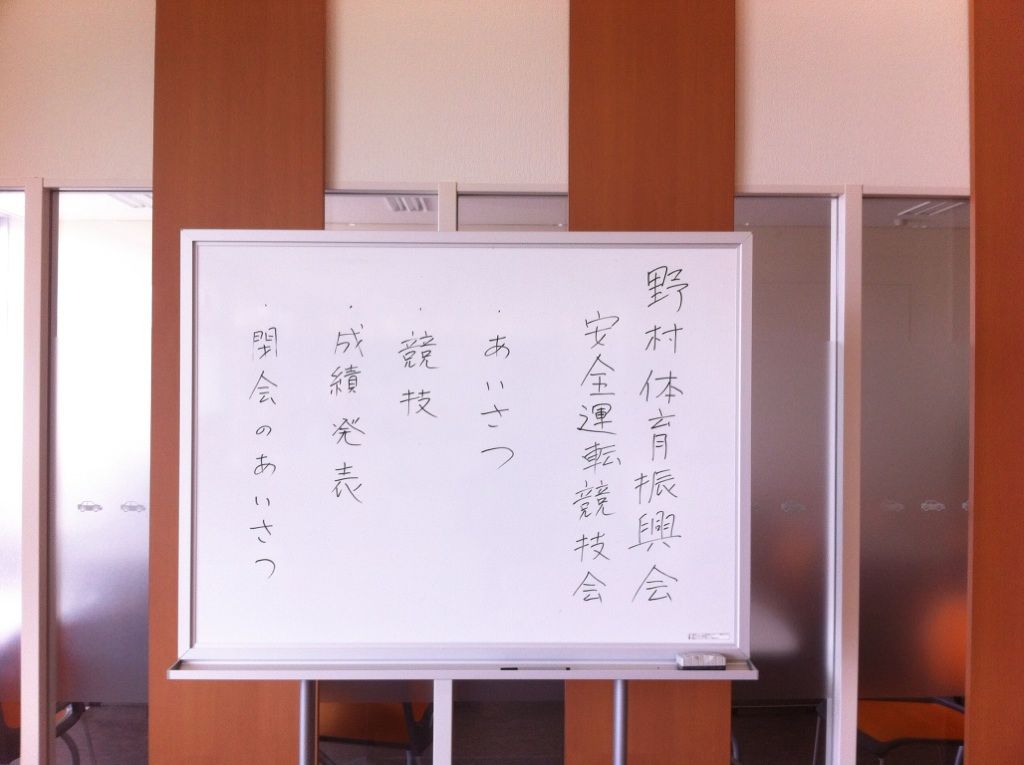 野村体育振興会
安全運転競技会
・あいさつ
・競技
・成績発表
・閉会のあいさつ